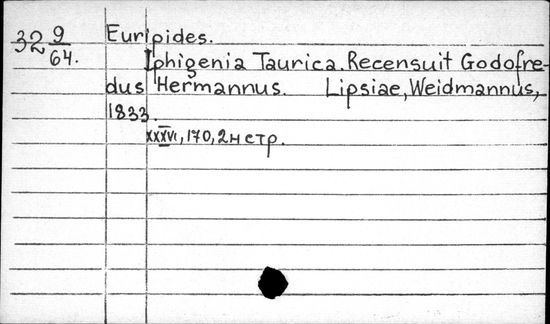 32 9/64.
Euripides.
Iphigenia Taurica. Recensuit Godofre-
dus Hermannus. Lipsiae, Weidmannus,
1833.
XXXVI, 170, 2 н стр.